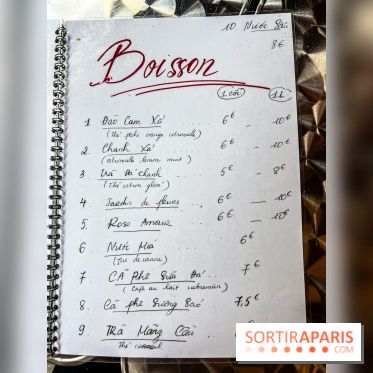 10 Nước Sấu
8€
Boisson
1 cốc 1L
1. Đào Cam Xả ... 6€ - 10€
(thé pêche orange citronnelle)
2. Chanh Xả ... 6€ - 10€
(citronnelle lemon mint)
3 Trà Đá Chanh ... 5€ - 8€
(Thé citron glacé)
4. Jardin de fleurs ... 6€ - 10€
5. Rose Amour ... 6€ - 10€
6 Nước Mía 6€
(Jus de canne)
7 CÀ Phê Sữa Đá .. 7€
(Café au lait vietnamien)
8. Cà phê Sương Sáo . 7,5€
9. Trà Mãng Cầu ...
Thé corossol
SORTIRAPARIS
.COM